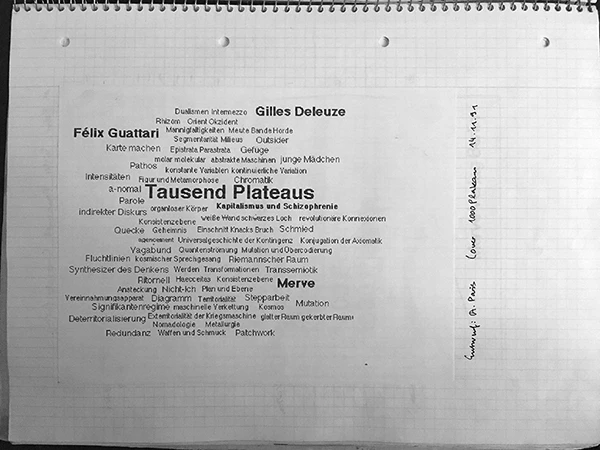 Dualismen Intermezzo Gilles Deleuze
Rhizom Orient Okzident
Félix Guattari Mannigfaltigkeiten Meute Bande Horde
Segmentarität Milieus Outsider
Karte machen Epistrata Parastrata Gefüge
molar molekular abstrakte Maschinen junge Mädchen
Pathos konstante Variablen kontinuierliche Variation
Intensitäten Figur und Metamorphose Chromatik
a-nomal Tausend Plateaus
Parole organloser Körper Kapitalismus und Schizophrenie
indirekter Diskurs weiße Wand schwarzes Loch revolutionäre Konnexionen
Konsistenzebene
Quecke Geheimnis Einschnitt Knacks Bruch Schmied
agencement Universalgeschichte der Kontingenz Konjugation der Axiomatik
Vagabund Quantenströmung Mutation und Übercodierung
Fluchtlinien kosmischer Sprechgesang Riemannscher Raum
Synthesizer des Denkens Werden Transformationen Transsemiotik
Ritornell Haecceitas Konsistenzebene Merve
Ansteckung Nicht-Ich Plan und Ebene
Vereinnahmungsapparat Diagramm Territorialität Stepparteit
Signifikantenregime maschinelle Verkettung Kosmos Mutation
Deterritorialisierung Exterritorialität der Kriegsmaschine glatter Raum gekerbter Raum
Nomadologie Metallurgie
Redundanz Waffen und Schmuck Patchwork
Entwurf: Paris Cover 1000 Plateaus 14.11.91